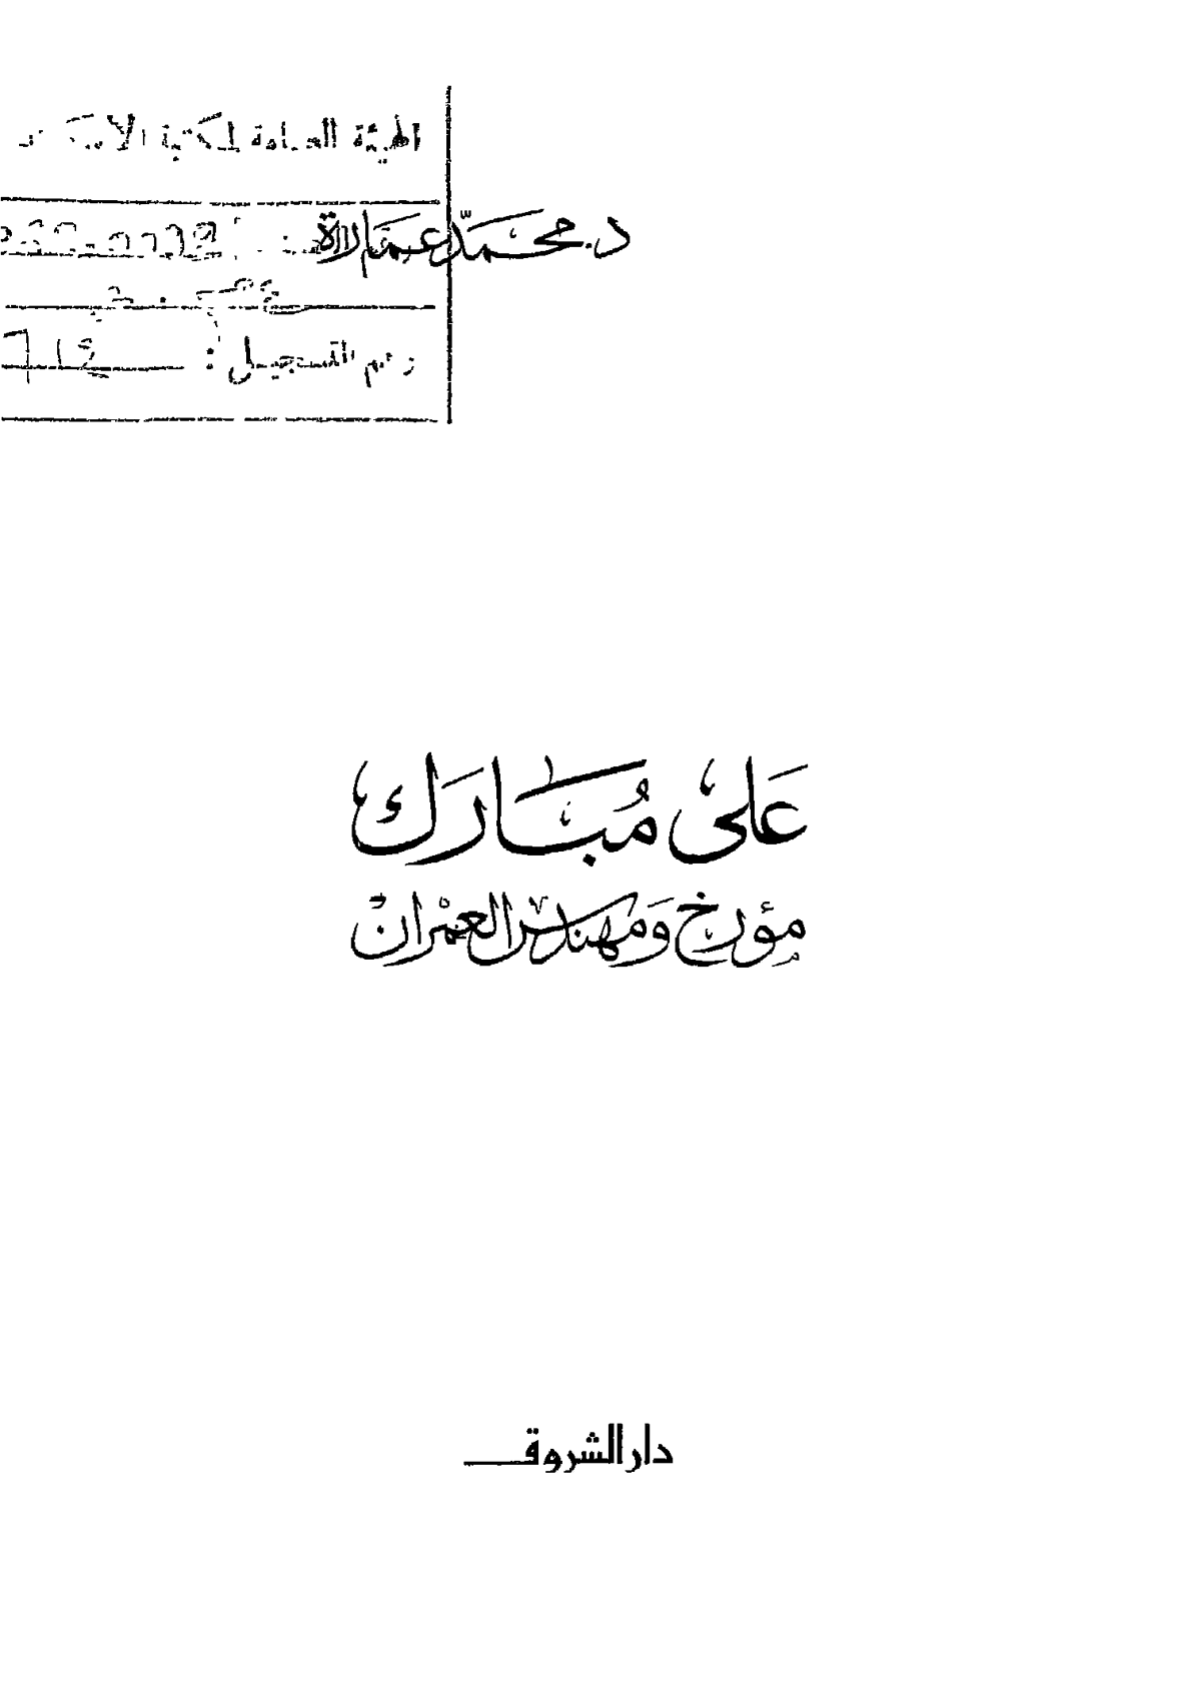 الهيئة العامة لمكتبة
د. محمّد عمارة
رقم التسجيل :
عَلى مُبَارَك
مؤرخ وَمهندس العمْران
دار الشروق